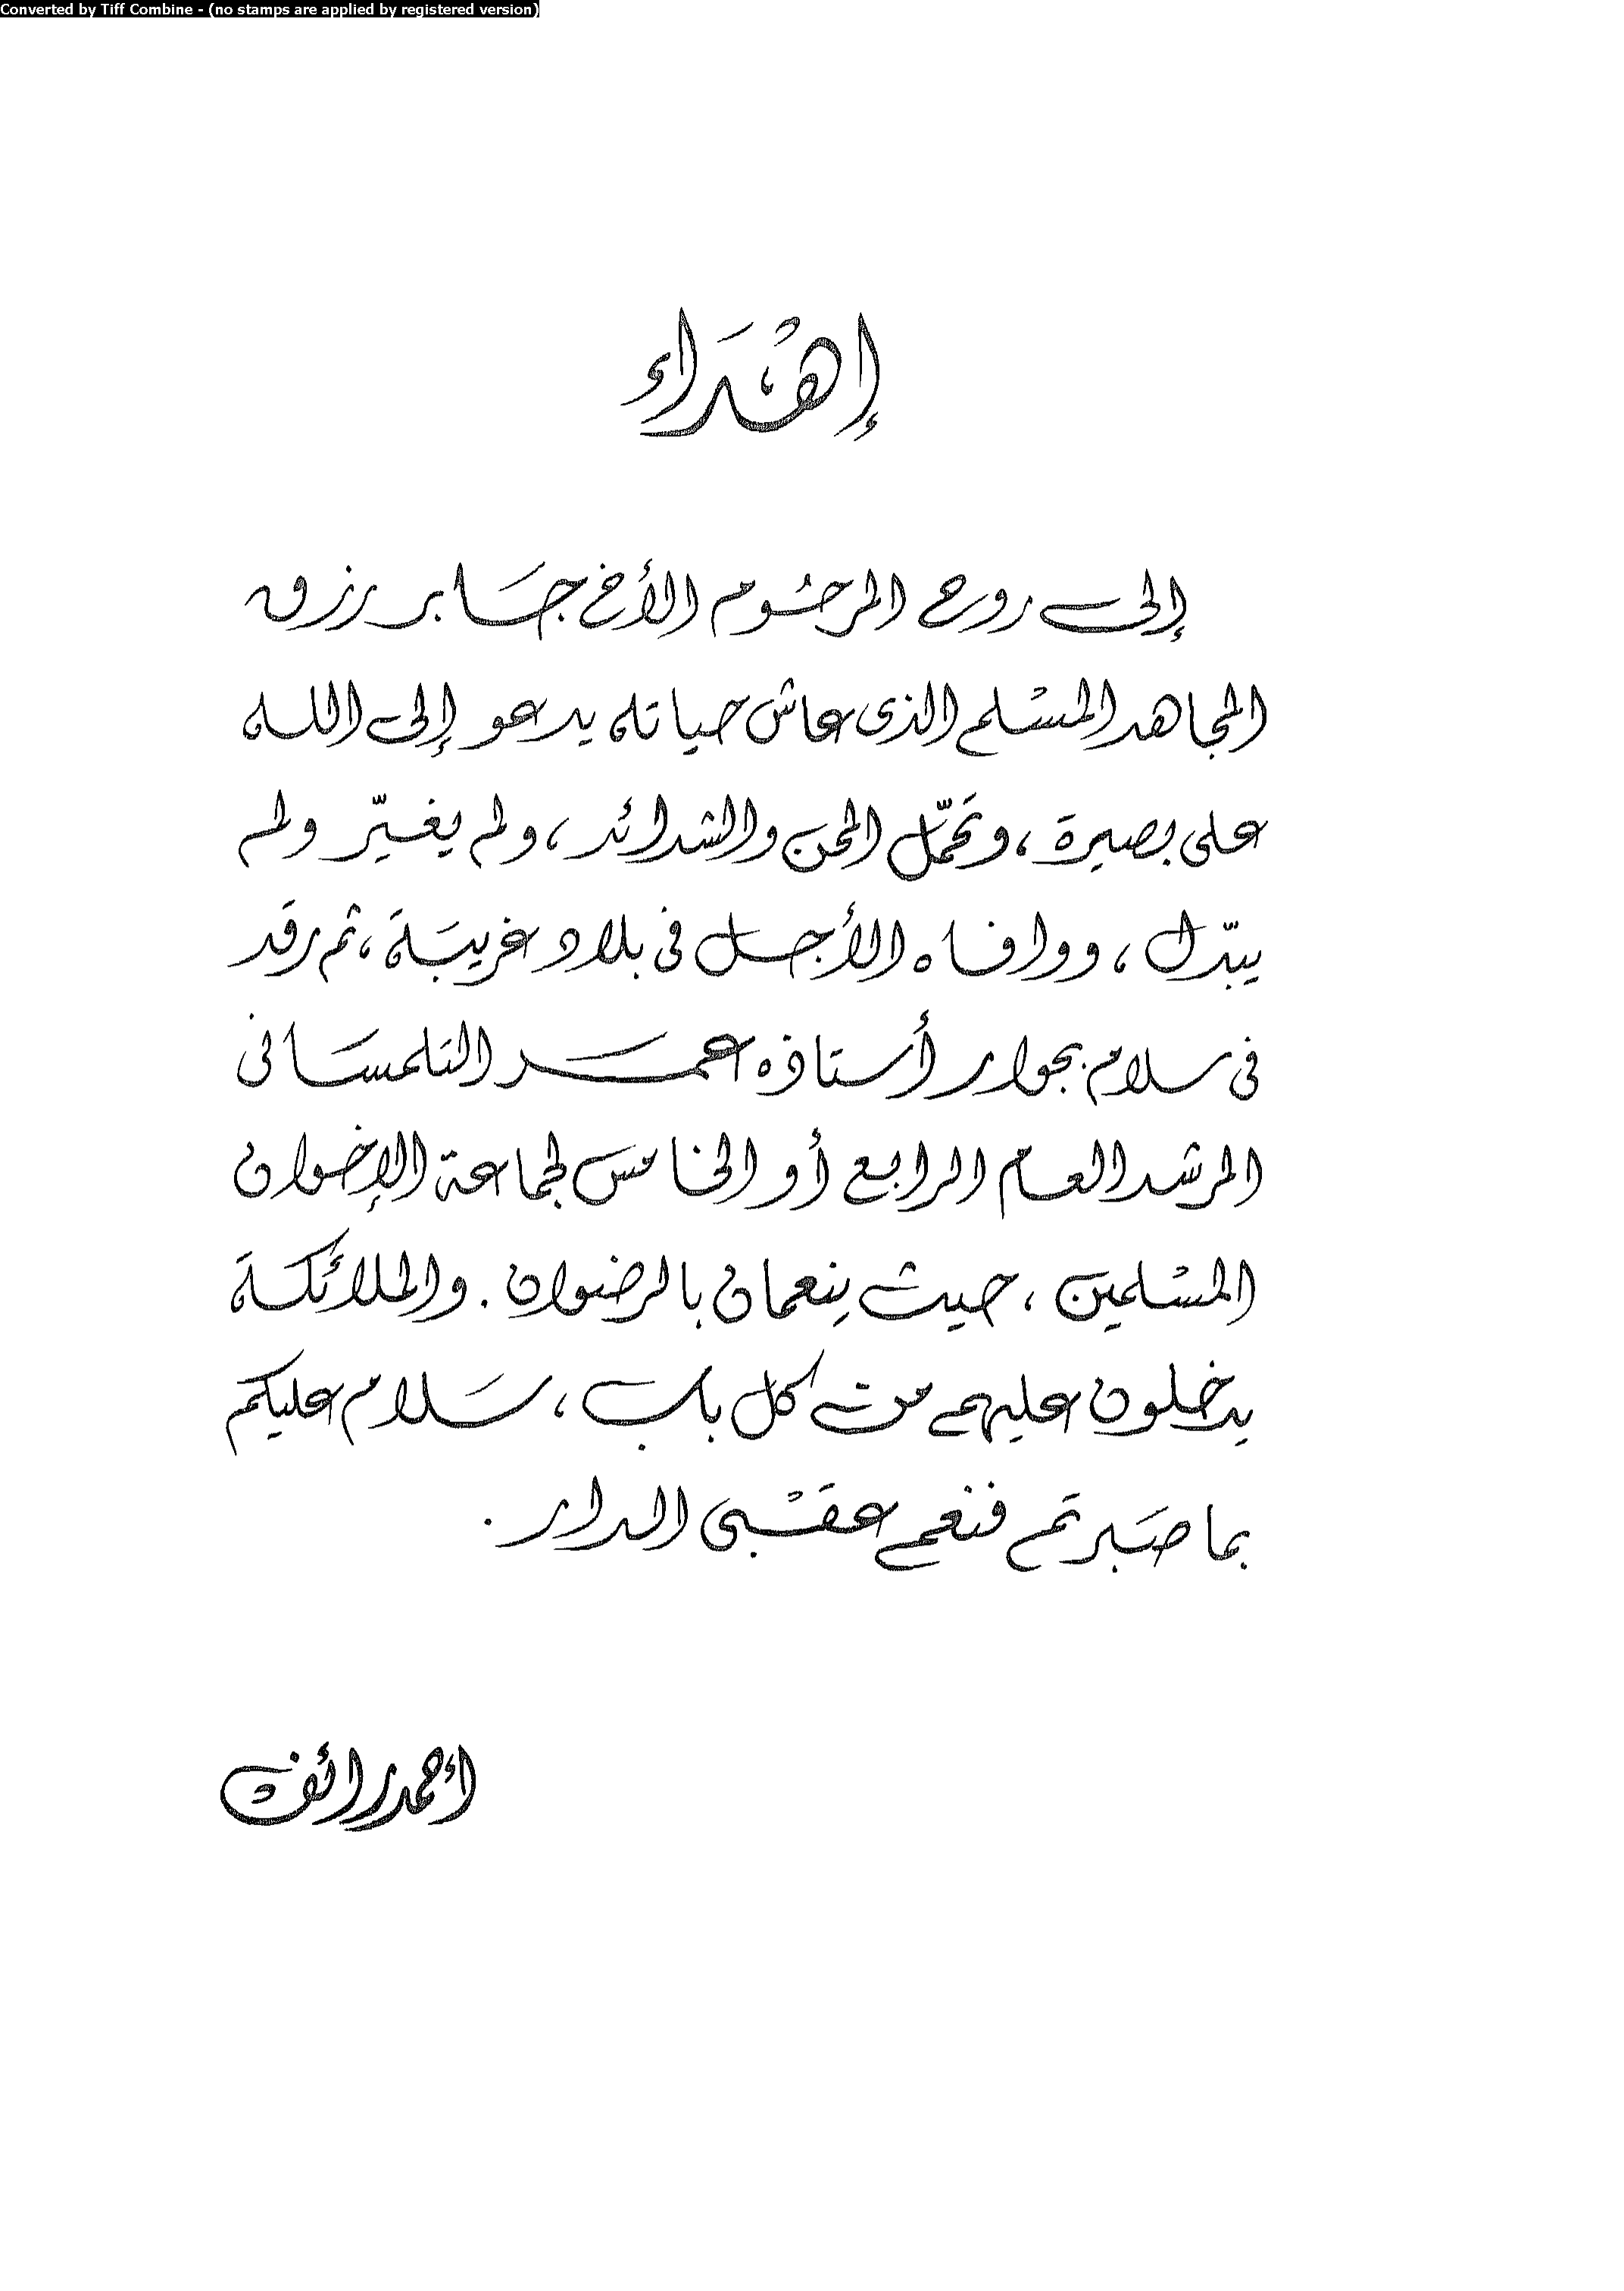 Converted by Tiff Combine - (no stamps are applied by registered version)
إهْدَاء
إلى روح المرحُوم الأخ جَابر رزق
المجاهد المسْلم الذى عاش حياته يدعو إلى الله
على بصيرة ، وتحَمّل المحن والشدائد ، ولم يغيّر ولم
يبدّل ، ووافاه الأجل فى بلاد غريبَة ، ثم رقد
فى سلام بجوار أستاذه عمر التلمسَانى
المرشد العام الرابع أو الخامس لجماعة الإخوان
المسْلمين ، حيث ينعمان بالرضوان . والملائكَة
يدخلون عليهم من كل باب ، سَلام عليكم
بما صَبرتم فنعم عقْبى الدار .
أحمد رائف